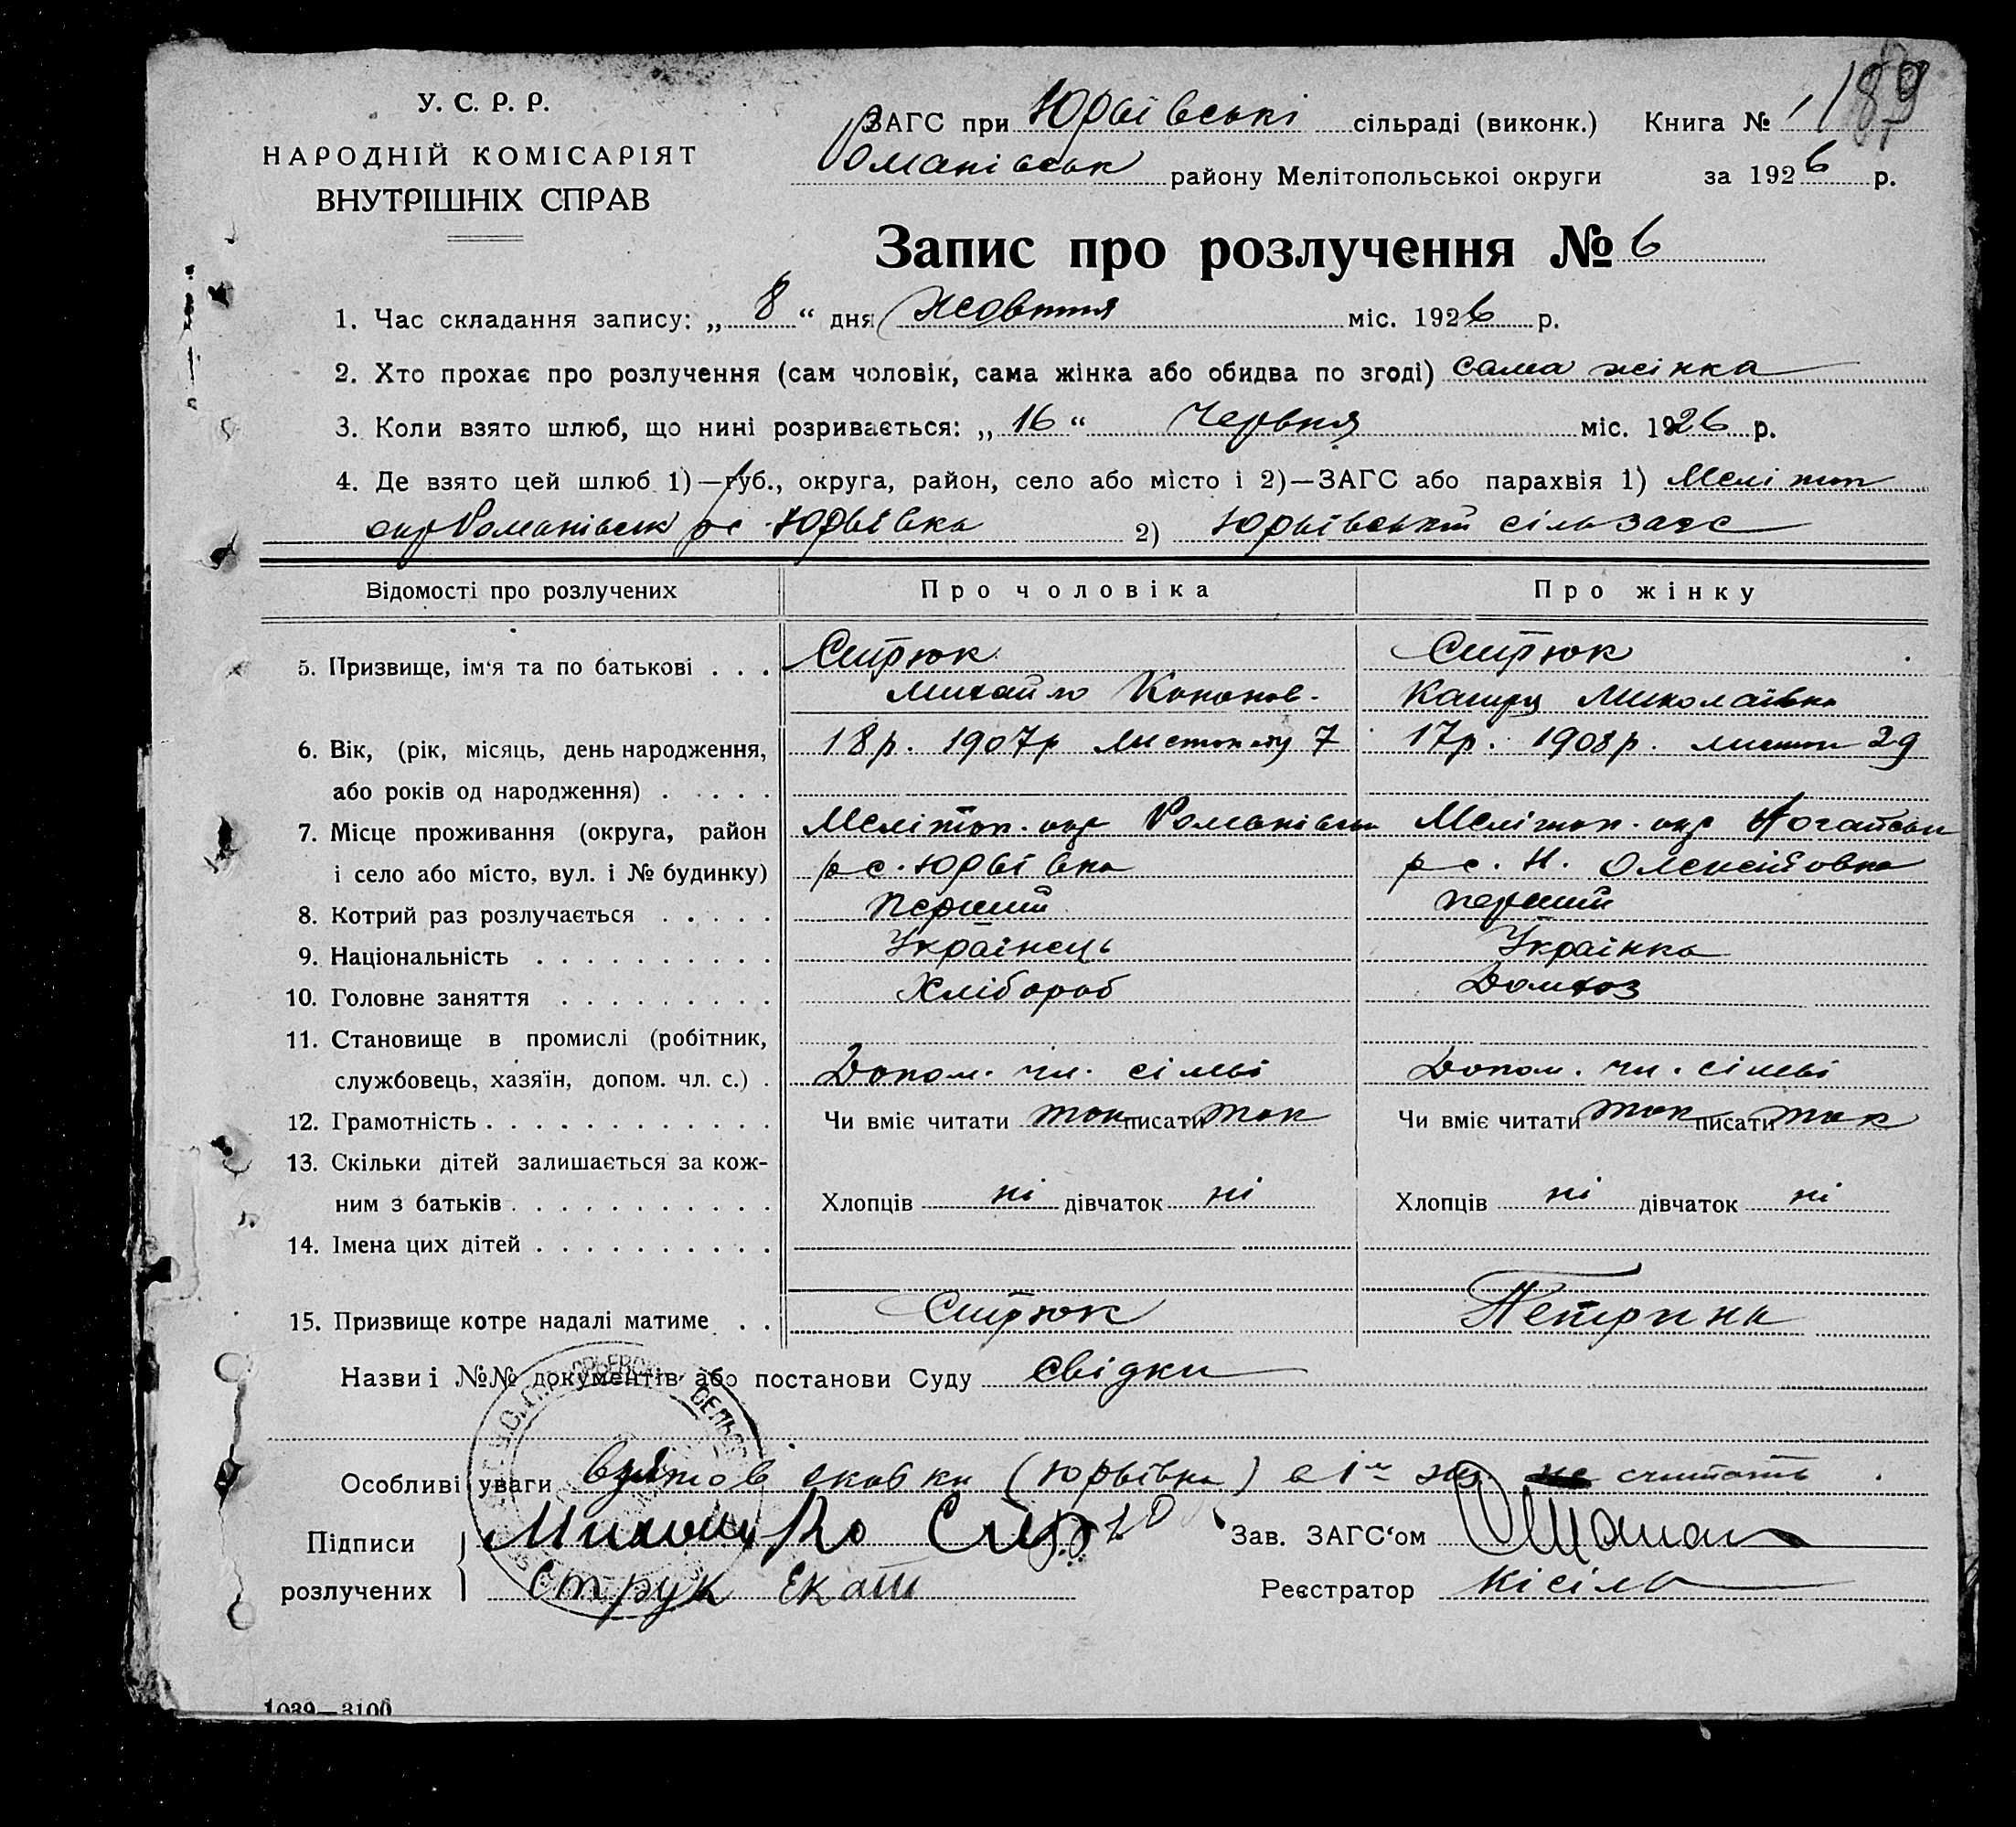 189
У. С. Р. Р.
НАРОДНІЙ КОМІСАРІЯТ
ВНУТРІШНІХ СПРАВ
ЗАГС при Юрьївські сільраді (виконк.) Книга № 1
Романівськ району Мелітопольської округи за 1926 р.
Запис про розлучення № 6
1. Час складання запису: „ 8 “ дня Жовтня міс. 1926 р.
2. Хто прохає про розлучення (сам чоловік, сама жінка або обидва по згоді) сама жінка
3. Коли взято шлюб, що нині розривається: „ 16 “ Червня міс. 1926 р.
4. Де взято цей шлюб 1)—губ., округа, район, село або місто і 2)—ЗАГС або парахвія 1) Мелітоп
окр Романівськ р с. Юрьївка 2) Юрьївський сільзагс
Відомості про розлучених Про чоловіка Про жінку
5. Призвище, ім‘я та по батькові . . . Стрюк Стрюк
Михайло Кононов. Катря Миколаївна
6. Вік, (рік, місяць, день народження, 18р. 1907р листопаду 7 17р. 1908р. листоп 29
або років од народження) . . . . .
7. Місце проживання (округа, район Мелітоп. окр Романівськ Мелітоп. окр Ногайськ
і село або місто, вул. і № будинку) р с. Юрьївка р с. Н. Олексіївка
8. Котрий раз розлучається . . . . . перший перший
9. Національність . . . . . . . . . . Українець Українка
10. Головне заняття . . . . . . . . . Хлібороб Домхоз
11. Становище в промислі (робітник,
службовець, хазяїн, допом. чл. с.) . Допом. чл. сімьї Допом. чл. сімьї
12. Грамотність . . . . . . . . . . . . Чи вміє читати так писати так Чи вміє читати так писати так
13. Скільки дітей залишається за кож-
ним з батьків . . . . . . . . . . . Хлопців ні дівчаток ні Хлопців ні дівчаток ні
14. Імена цих дітей . . . . . . . . . .
15. Призвище котре надалі матиме . . Стрюк Петрина
Назви і №№ документів або постанови Суду свідки
Особливі уваги (Юрьївка) считать
Підписи Зав. ЗАГС‘ом
розлучених Струк Екат Реєстратор Кісіль
1039—3100